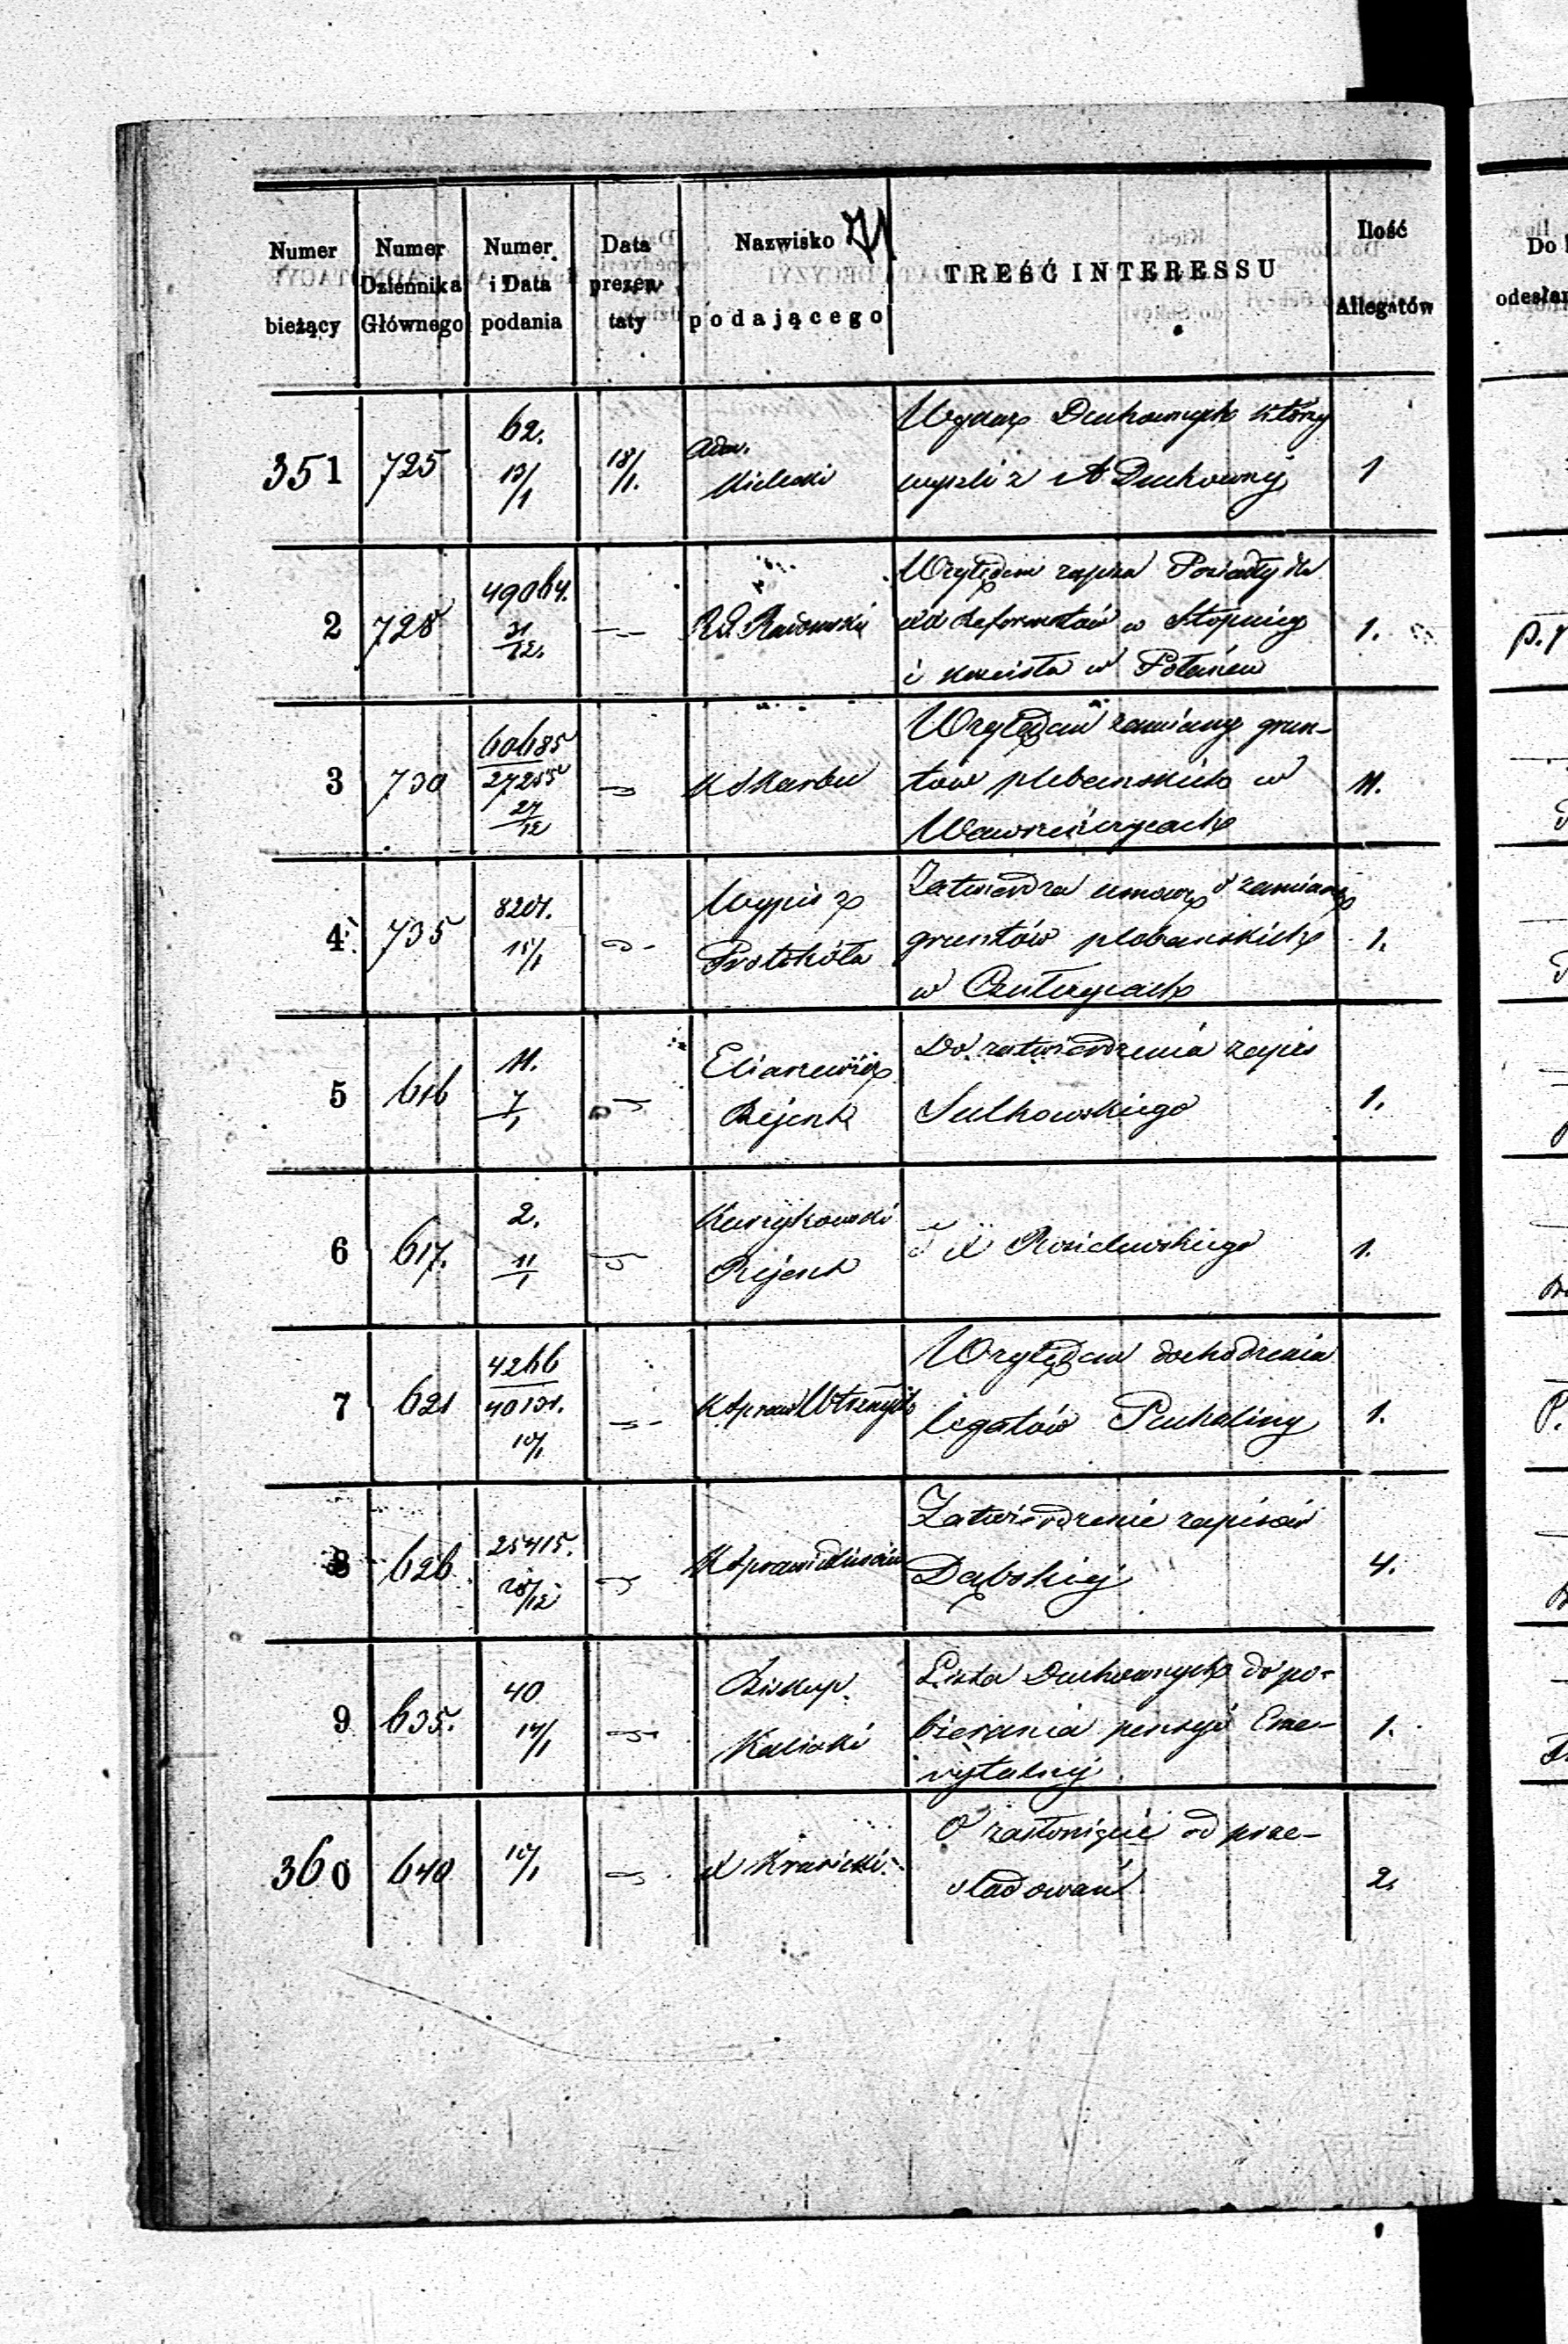 Numer bieżący
Numer Dziennika Głównego
Numer i Data podania
Data prezentaty
Nazwisko podającego
TREŚĆ INTERESSU
Ilość Allegatów
351 725 62. 13/1 18/1. Adm. Kielecki
Wykaz Duchownych którzy
wyszli z A Duchownej 1
2 728 49064. 31/12. — Rd. Radomski
Względem zapisu Posiadły dla
XX Reformatów w Stopnicy
i kościoła w Połańcu 1.
3 730 60685/27255 27/12 — K Skarbu
Względem zamiany grun-
tów plebańskich w
Wawrzeńczycach 11.
4 735 8201. 15/1 — Wypis z
Protokóła
Zatwierdza umowę o zamianę
gruntów plebańskich
w Czulczycach 1.
5 616 11. 7/1 — Elianewicz
Rejent
Do zatwierdzenia zapis
Sulkowskiego 1.
6 617. 2. 11/1 — Kurzykowski
Rejent
X 1.
7 621 4266/40131. 10/1 — K Spraw Wewnętrz
Względem dochodzenia
legatów Puchaliny 1.
8 626 25415. 28/12 — K Sprawiedliwości
Zatwierdzenie zapisów
Dąbskiej 4.
9 635. 40 14/1 — Biskup.
Kaliski
Lista Duchownych do po-
bierania pensyi Eme-
rytalnej 1.
360 640 10/1 — X Krasicki
O zasłonięcie od prze-
śladowań 2.
Do
odesłan